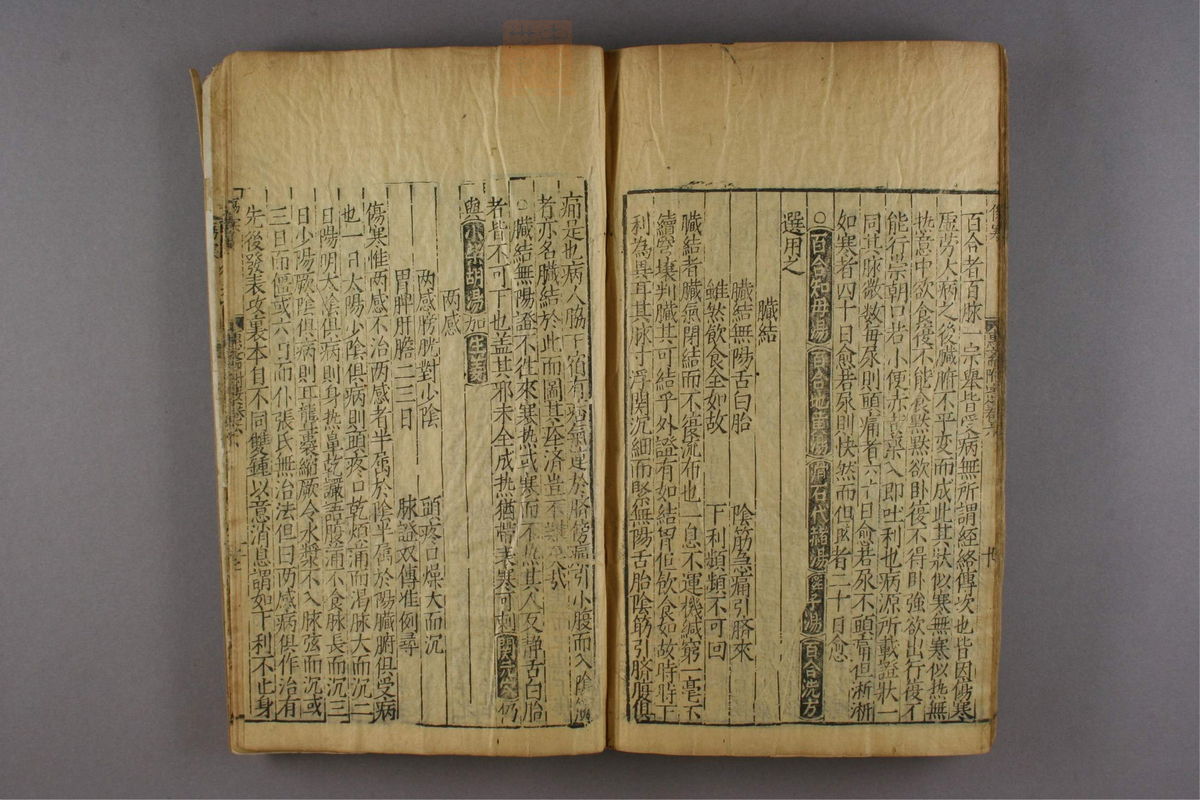 百合者百脉一宗舉皆受病無所謂經絡傳次也皆因傷寒
虛勞大病之後臟腑不平变而成此其狀似寒無寒似热無
热意中欲食復不能食黙黙欲卧復不得卧強欲出行復不
能行崇朝口若小便赤藥入即吐利也病源所載證狀一
同其脉微数每尿則頭痛者六十日愈若尿不頭痛但淅淅
如寒者四十日愈若尿則快然而但眩者二十日愈
○百合知母湯 百合地黄湯 滑石代赭湯 雞子湯 百合洗方
選用之
臟結
臟結無陽舌白胎 陰筋急痛引臍來
雖然飲食全如故 下利頻頻不可回
臟結者臟氣閉結而不復流布也一息不運機緘窮一毫不
續穹壤判臟其可結乎外證有如結胷但飲食如故時時下
利為異耳其脉寸浮関沉細而緊無陽舌胎陰筋引臍腹俱
痛是也病人脇下宿有痞氣連於臍傍痛引小腹而入陰
者亦名臟結於此而圖其至濟豈不
○臟結無陽證不往來寒热或寒而不热其人反静舌白胎
者皆不可下也盖其邪未全成热猶帶表寒可刺関元穴仍
與小柴胡湯加生姜
两感
两感膀胱對少陰 頭疼口燥大而沉
胃脾肝膽二三日 脉證双傳准例尋
傷寒惟两感不治两感者半属於陰半属於陽臟腑俱受病
也一日太陽少陰俱病則頭疼口乾煩満而渇脉大而沉二
日陽明太陰俱病則身热鼻乾讝語腹満不食脉長而沉三
日少陽厥陰俱病則耳聾囊縮厥令水漿不入脉弦而沉或
三日而傳或六日而仆張氏無治法但曰两感病俱作治有
先後發表攻裏本自不同雙鍾以意消息謂如下利不止身